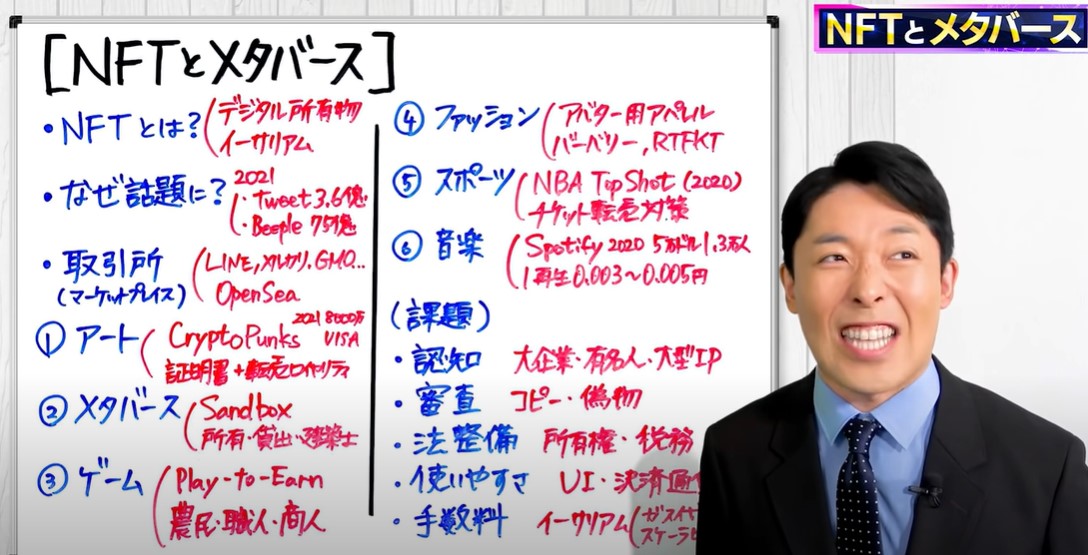 NFTとメタバース
[NFTとメタバース]
・NFTとは?
デジタル所有物
イーサリアム
・なぜ話題に?
2021
・Tweet 3.6億
・Beeple 75億
・取引所
(マーケットプレイス)
LINE,メルカリ.GMO...
OpenSea
① アート
CryptoPunks
2021 8000万
VISA
証明書+転売ロイヤリティ
② メタバース
Sandbox
所有・貸出・建築士
③ ゲーム
Play-to-Earn
農民・職人・商人
④ ファッション
アバター用アパレル
バーバリー,RTFKT
⑤ スポーツ
NBA TopShot (2020)
チケット転売対策
⑥ 音楽
Spotify 2020 5万ドル 1.3万人
1再生0.003~0.005円
(課題)
・認知 大企業・有名人・大型IP
・審査 コピー・偽物
・法整備 所有権・税務
・使いやすさ UI・決済通
・手数料 イーサリアム